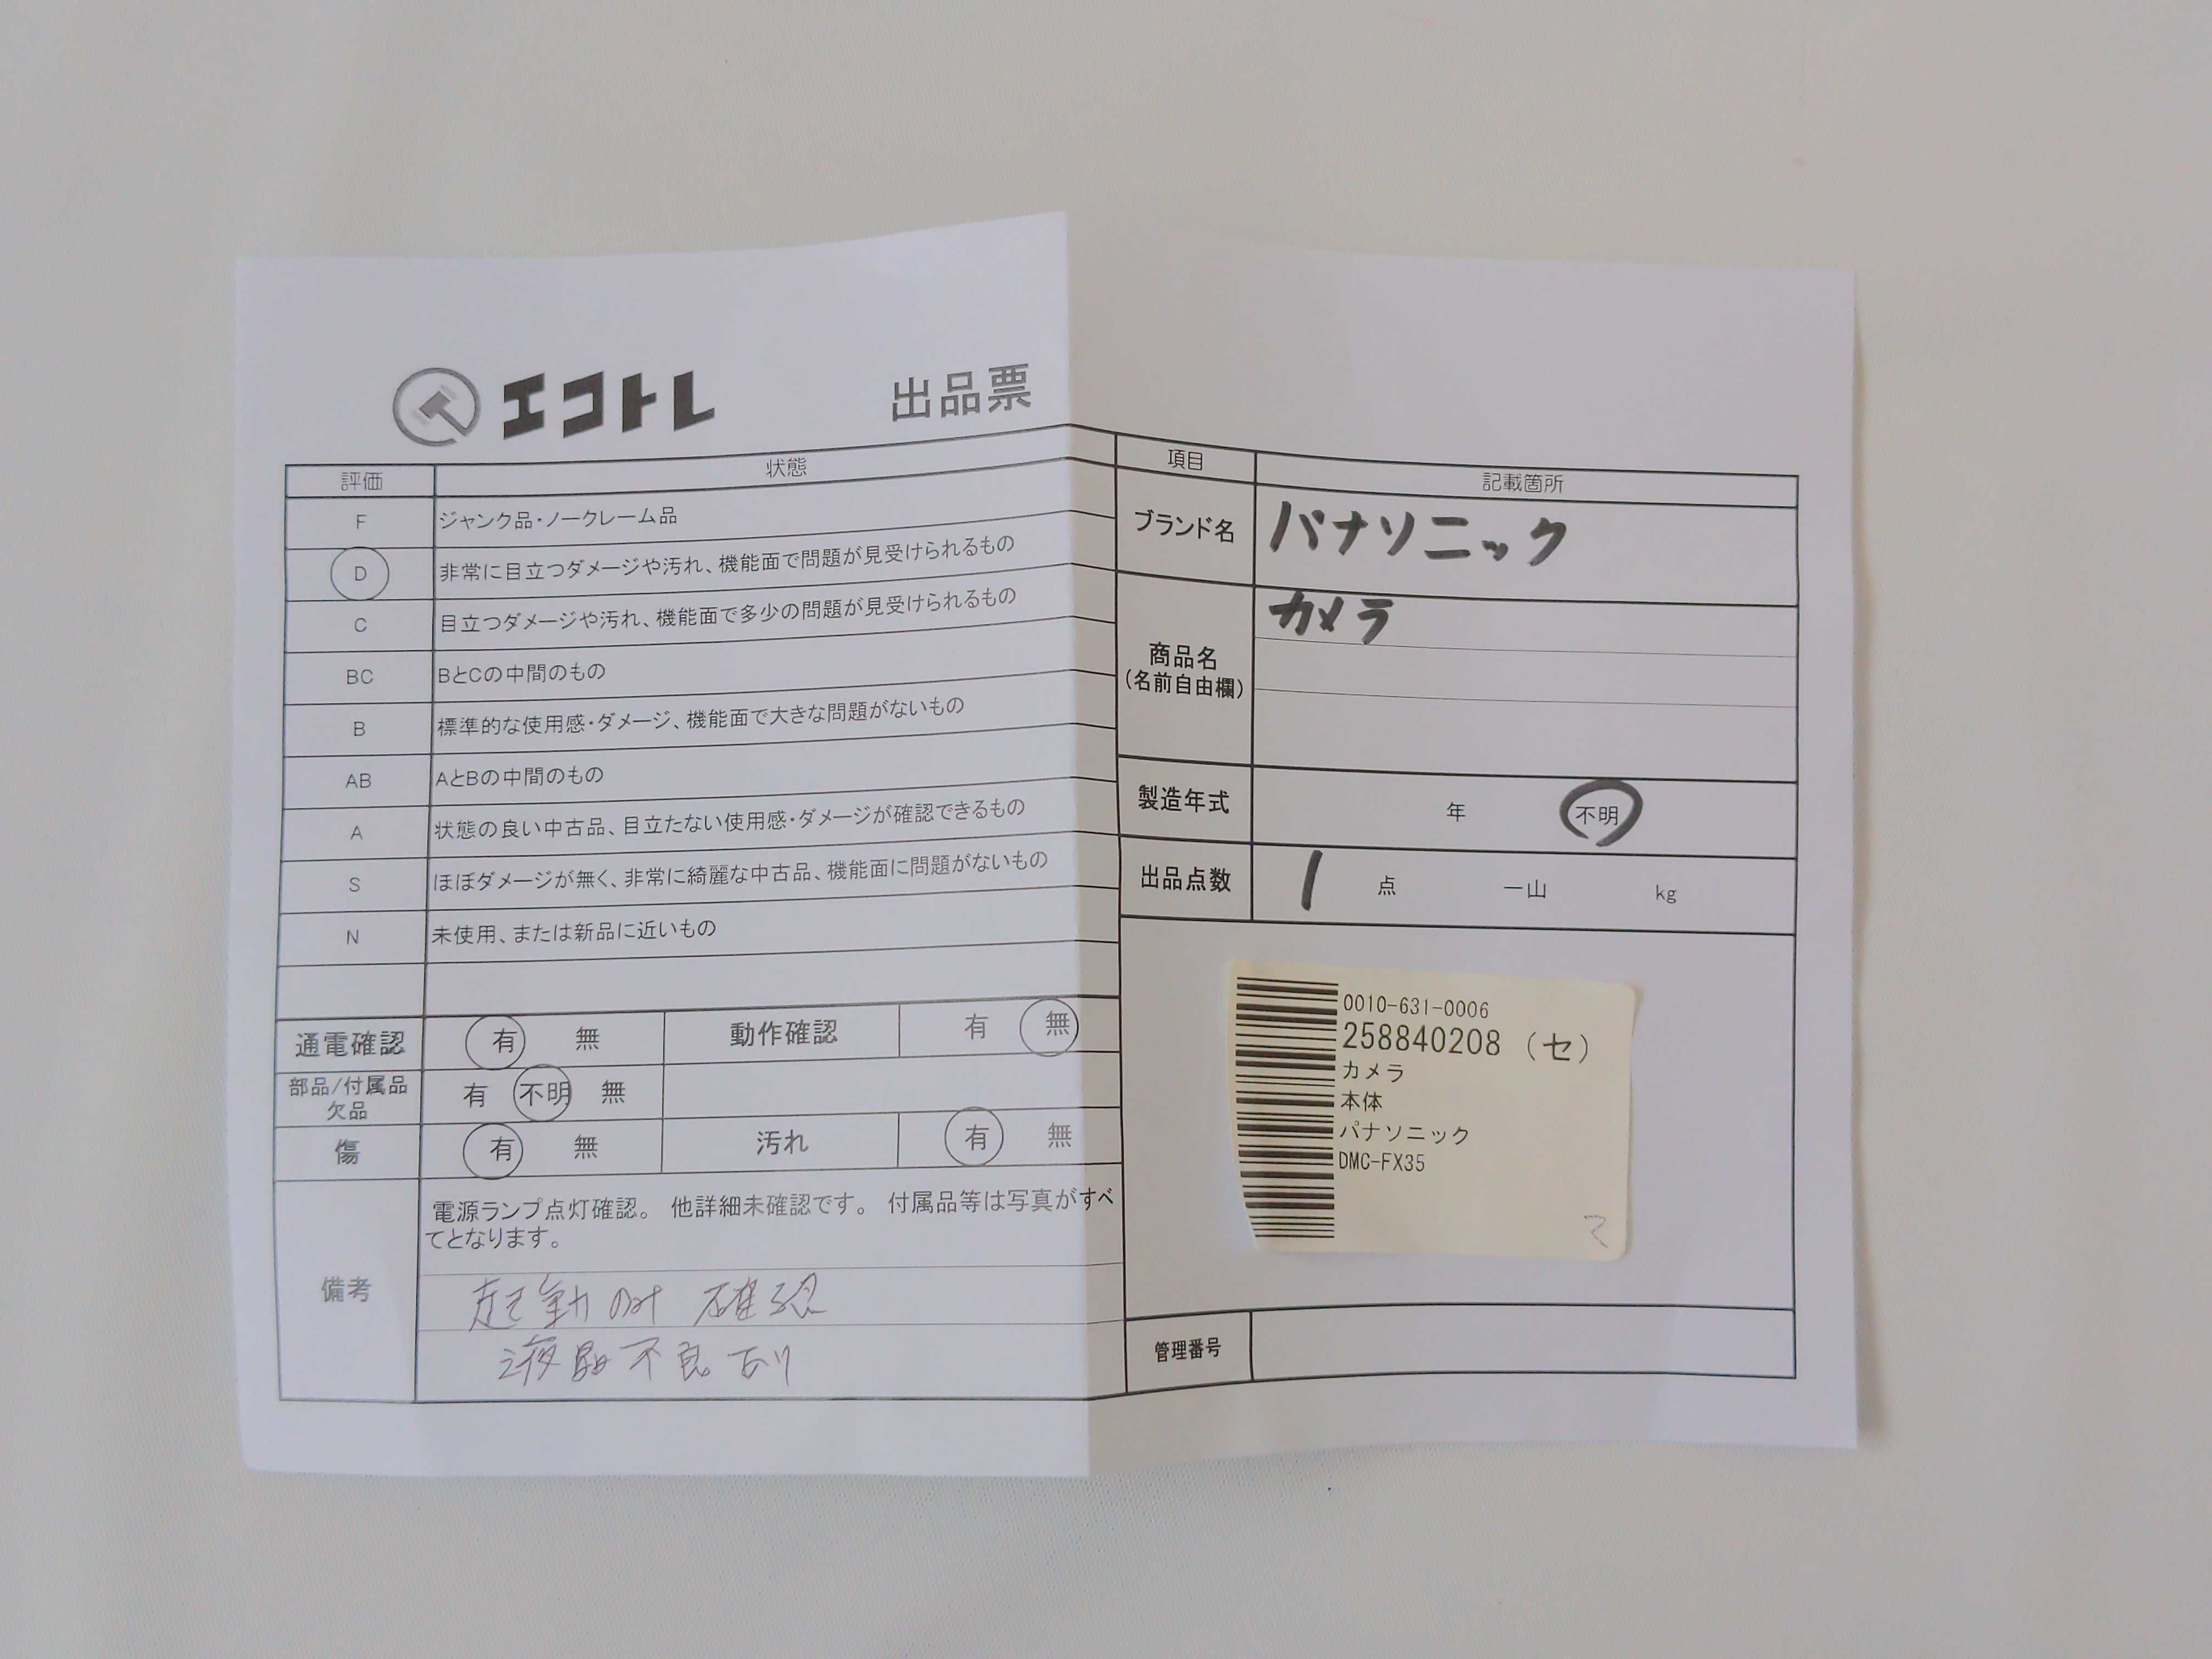 エコトレ 出品票
評価 状態
F ジャンク品・ノークレーム品
D 非常に目立つダメージや汚れ、機能面で問題が見受けられるもの
C 目立つダメージや汚れ、機能面で多少の問題が見受けられるもの
BC BとCの中間のもの
B 標準的な使用感・ダメージ、機能面で大きな問題がないもの
AB AとBの中間のもの
A 状態の良い中古品、目立たない使用感・ダメージが確認できるもの
S ほぼダメージが無く、非常に綺麗な中古品、機能面に問題がないもの
N 未使用、または新品に近いもの
通電確認 有 無 動作確認 有 無
部品/付属品
欠品 有 不明 無
傷 有 無 汚れ 有 無
備考
電源ランプ点灯確認。 他詳細未確認です。 付属品等は写真がすべ
てとなります。
起動のみ 確認
液晶不良あり
項目 記載箇所
ブランド名 パナソニック
商品名
(名前自由欄)
カメラ
製造年式 年 不明
出品点数 1 点 一山 kg
0010-631-0006
258840208 (セ)
カメラ
本体
パナソニック
DMC-FX35
管理番号